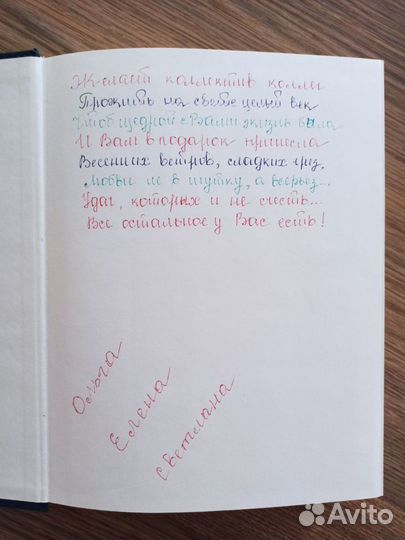 Желает коллектив коллег
Прожить на свете целый век
Чтоб щедрой с Вами жизнь была
И Вам в подарок принесла
Весенних ветров, сладких грёз,
Любви не в шутку, а всерьёз...
Удач, которых и не счесть...
Все остальное у Вас есть!
Ольга
Елена
Светлана
Avito